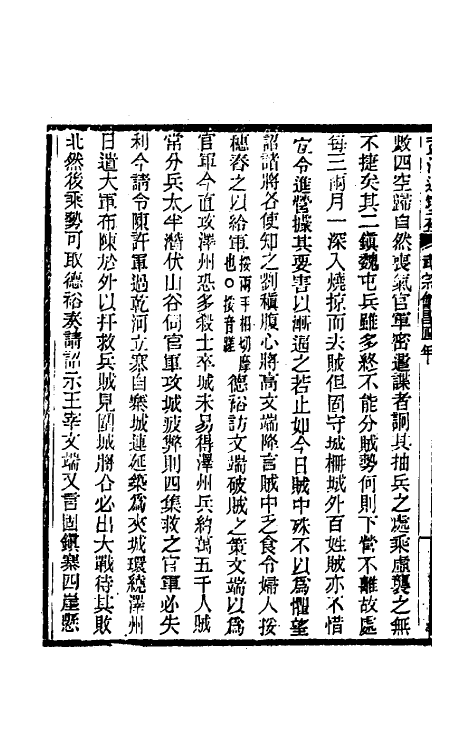 敗四空歸自然喪氣官軍密遣諜者詗其抽兵之處乘虛襲之無
不捷矣其二鎮魏屯兵雖多終不能分賊勢何則下營不離故處
每三兩月一深入燒掠而去賊但固守城柵城外百姓賊亦不惜
宜令進營據其要害以漸逼之若止如今日賊中殊不以為懼望
詔諸將各使知之劉稹腹心將高文端降言賊中乏食令婦人挼
穗舂之以給軍挼兩手相切摩也○挼音䙡德裕訪文端破賊之策文端以為
官軍今直攻澤州恐多殺士卒城未易得澤州兵約萬五千人賊
常分兵太半潛伏山谷伺官軍攻城疲弊則四集救之官軍必失
利今請令陳許軍過乾河立寨自寨城連延築為夾城環繞澤州
日遣大軍布陳於外以扞救兵賊見圍城將合必出大戰待其敗
北然後乘勢可取德裕奏請詔示王宰文端又言固鎮寨四崖懸